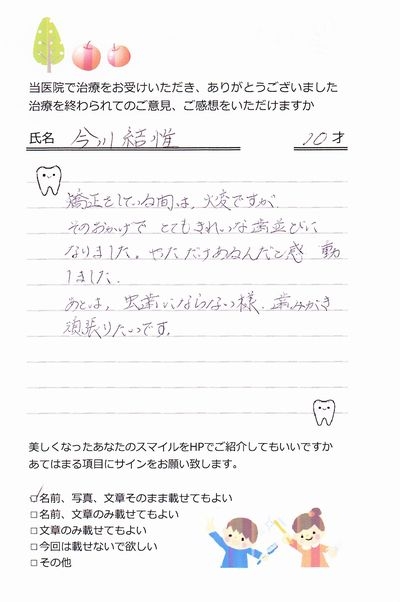 当医院で治療をお受けいただき、ありがとうございました
治療を終わられてのご意見、ご感想をいただけますか
氏名 今川 結惟 10才
矯正をしている間は、大変ですが
そのおかげで とてもきれいな歯並びに
なりました。やっただけあるんだと感 動
しました。
あとは、虫歯にならない様、歯みがき
頑張りたいです。
美しくなったあなたのスマイルをHPでご紹介してもいいですか
あてはまる項目にサインをお願い致します。
□名前、写真、文章そのまま載せてもよい
□名前、文章のみ載せてもよい
□文章のみ載せてもよい
□今回は載せないで欲しい
□その他